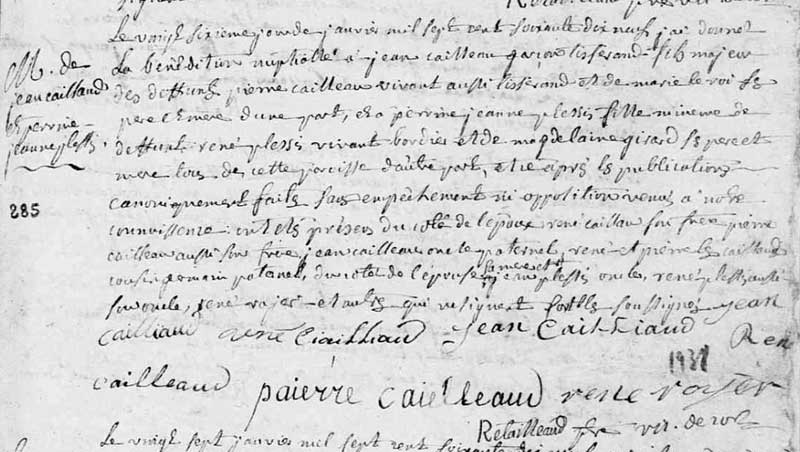 Le vingt sixieme jour de janvier mil sept cent soixante dix neuf j'ai donné
la benediction nuptialle a jean cailleau garçon tisserand fils majeur
des deffunts pierre cailleau vivant aussi tisserand et de marie le roi ss
pere et mere d'une part, et a perrine jeanne plessis fille mineure de
deffunt rené plessis vivant bordier et de magdelaine girard ss pere et
mere tous de cette paroisse d'autre part, et ce après les publications
canoniquement faits sans empêchement ni opposition venus a notre
connoissence ont ets présens du coté de l'epoux rené caillau son frere pierre
cailleau aussi son frere jean cailleau oncle paternel, rené et pierre les caillaud
cousin germain paternel, du coté de l'epouse sa mere et jean plessis oncle, rené plessis aussi
son oncle, rené rajer et autres qui ne signent fors les soussignes jean
M. de
jean caillaud
et perrine
jeanne plessis
285
cailliaud rené Ciailliaud jean Cailliaud Ren
1931
cailleaud paierre Caielleaud rene royer
Retailleaud ptre vic. de
Le vingt sept janvier mil sept cent soixante dix